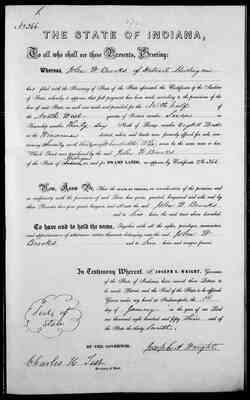 No 366.
THE STATE OF INDIANA,
To all who shall see these Presents, Greeting:
Whereas, John W. Brooks of Detroit Michigan
has filed with the Secretary of State of the State aforesaid, the Certificate of the Auditor
of State, whereby it appears that full payment has been made according to the provisions of the
law of said State, in such case made and provided for the North half of
the North West quarter of Section
Township number Thirty Seven North of Range number Eight West
in the Winamac district,
containing Seventy and
Which Tract was purchased by the said John W. Brooks
of the State of for SWAMP LANDS, as appears by Certificate No. 366.
Now, Know Ye, That the STATE OF INDIANA, in consideration of the premises, and
in conformity with the provisions of said law, has given, granted, bargained and sold, and by
these Presents does give, grant, bargain, and sell unto the said John W. Brooks
and to his heirs the said tract above described.
To have and to hold the same, Together with all the rights, privileges, immunities
and appurtenances of whatsoever nature thereunto belonging, unto the said John W.
Brooks and to his heirs and assigns forever.
In Testimony Whereof, I, JOSEPH A. WRIGHT, Governor
of the State of Indiana, have caused these Letters to
be made Patent, and the Seal of the State to be affixed.
Given under my hand at Indianapolis, the 1st
day of January in the year of our Lord
one thousand eight hundred and fifty three and of the
State the thirty Seventh.
Seal of
State
BY THE GOVERNOR,
Joseph A. Wright
Charles H. Test
Secretary of State.